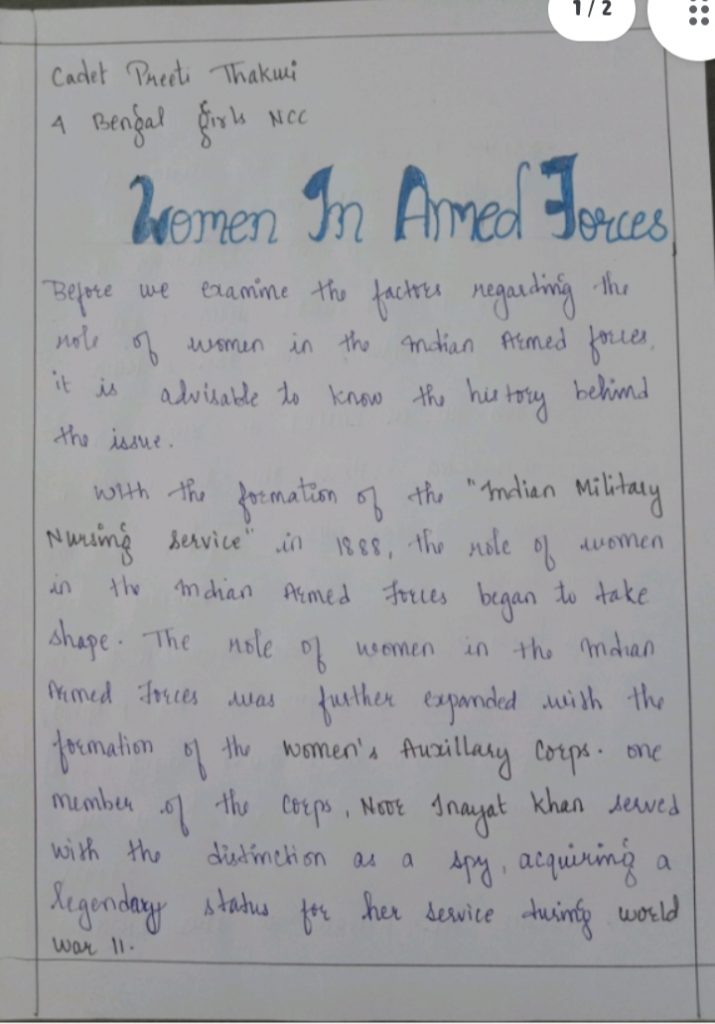 1/2
Cadet Preeti Thakuri
4 Bengal Girls NCC
Women In Armed Forces
Before we examine the factors regarding the
role of women in the Indian Armed forces,
it is advisable to know the history behind
the issue.
With the formation of the "Indian Military
Nursing Service" in 1888, the role of women
in the Indian Armed Forces began to take
shape. The role of women in the Indian
Armed Forces was further expanded with the
formation of the Women's Auxillary Corps. one
member of the Corps, Noor Inayat Khan served
with the distinction as a spy, acquiring a
legendary status for her service during world
war II.